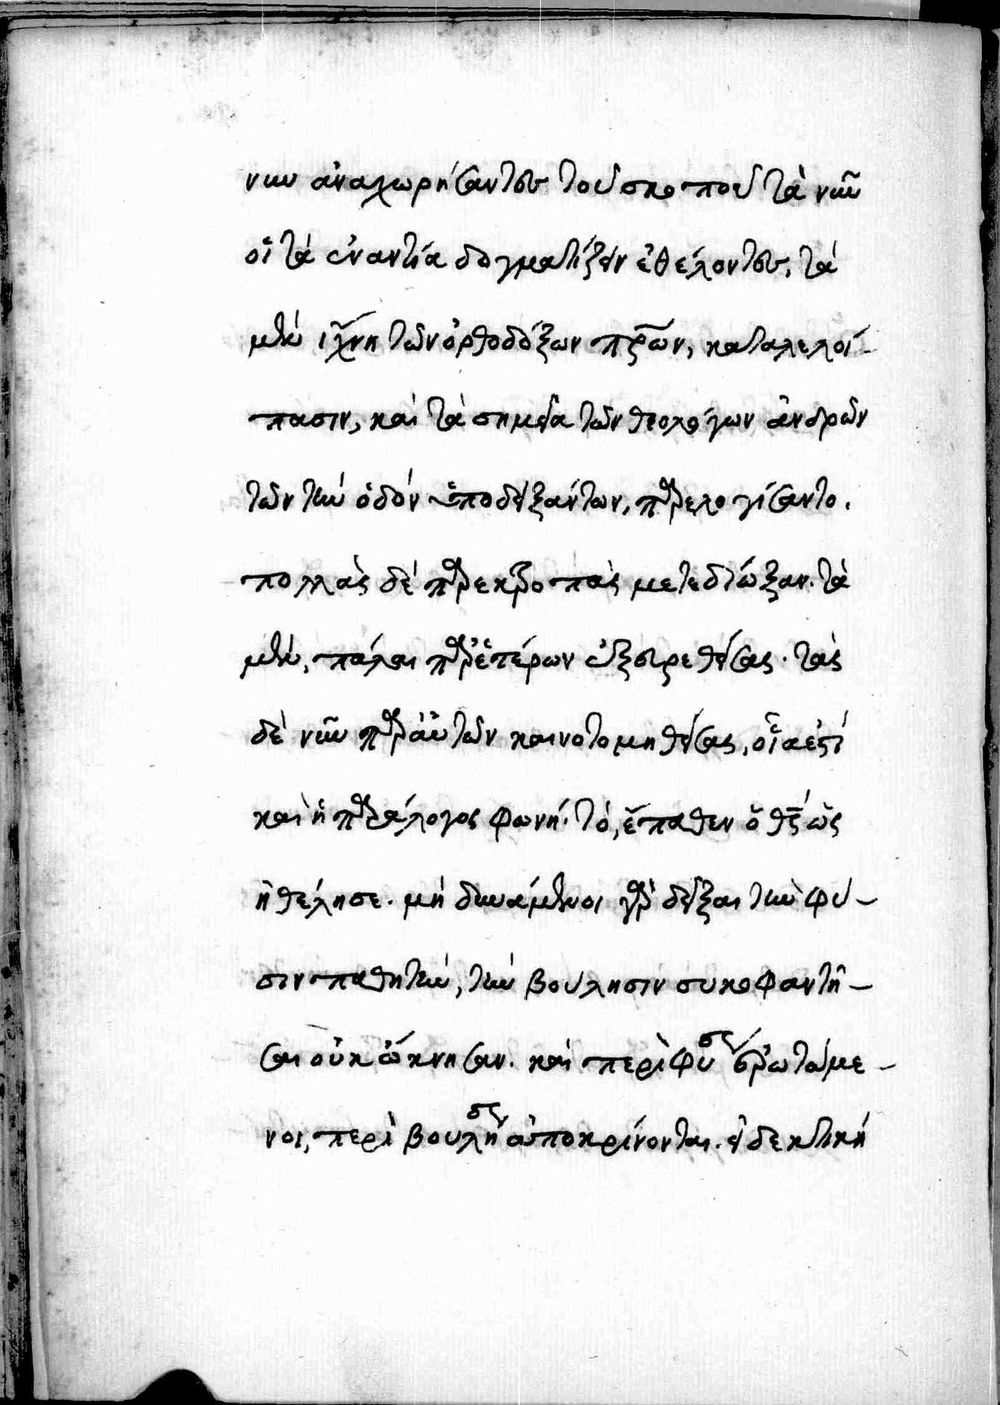 νων ἀναχωρήσαντες τοῦ σκοποῦ τὰ νῦν
οἱ τὰ ἐναντία δογματίζειν ἐθέλοντες, τὰ
μὲν ἴχνη τῶν ὀρθοδόξων πρ̅ων, καταλελοί-
πασιν, καὶ τὰ σημεῖα τῶν θεολόγων ἀνδρῶν
τῶν τὴν ὁδὸν ὑποδειξάντων, παρελογίσαντο.
πολλὰς δὲ παρεκτροπὰς μετεδίωξαν. τὰς
μὲν, πάλαι παρ' ἑτέρων ἐξευρεθείσας. τὰς
δὲ νῦν παρ' αὐτῶν καινοτομηθείσας, οἵα ἐστὶ
καὶ ἡ παράλογος φωνή. τό, ἔπαθεν ὁ θς̅ ὡς
ἠθέλησε. μὴ δυνάμενοι γὰρ δεῖξαι τὴν φύ-
σιν παθητὴν, τὴν βούλησιν συκοφαντῆ-
σαι οὐκ ὤκνησαν. καὶ περὶ φύσεως ἐρωτώμε-
νοι, περὶ βουλήσεως ἀποκρίνονται. εἰ δεκτικὴ